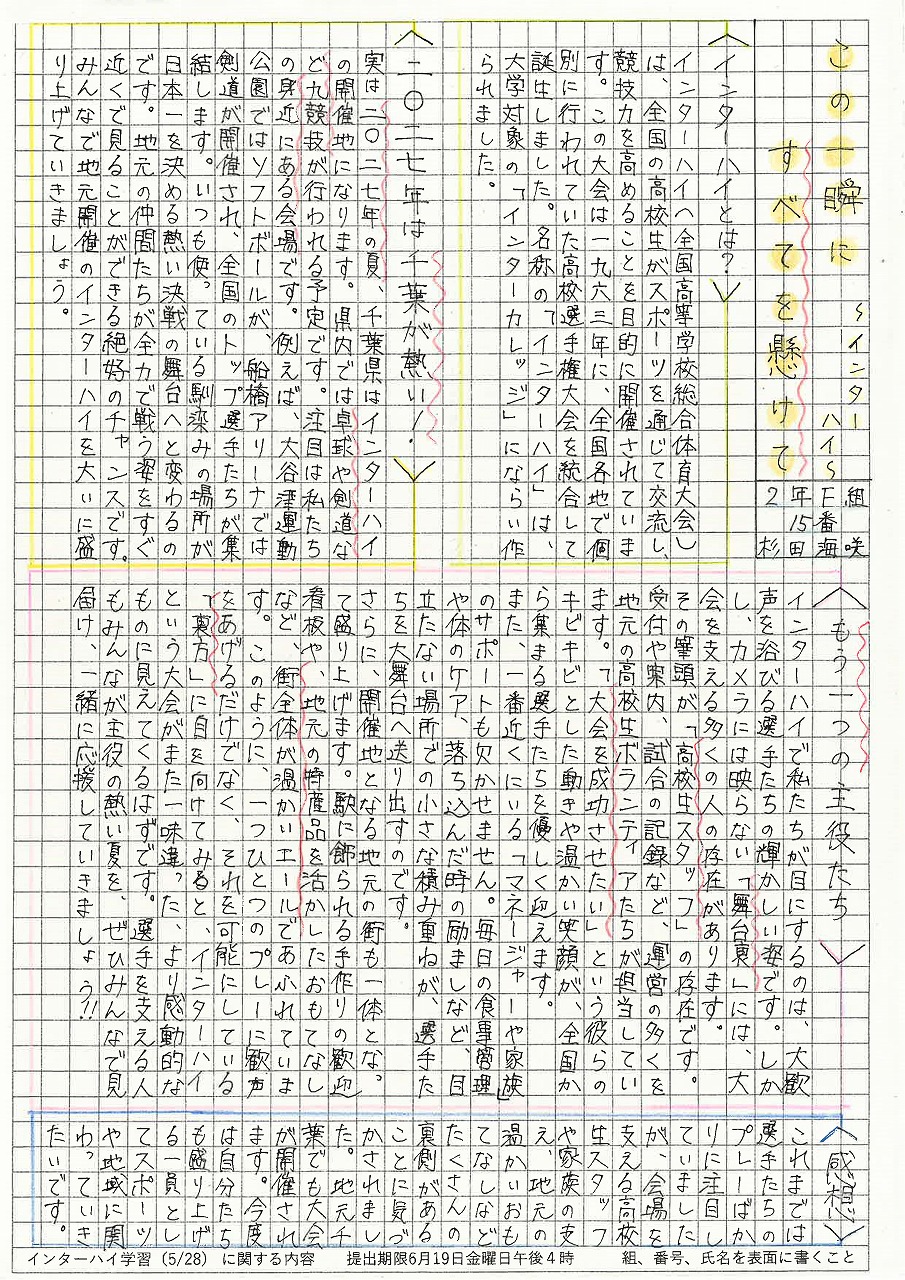 この一瞬に
すべてを懸けて
～インターハイ～
2年F組
15番
杉田海咲
＜インターハイとは？＞
インターハイへ全国高等学校総合体育大会し
は、全国の高校生がスポーツを通じて交流し、
競技力を高めることを目的に開催されていま
す。この大会は一九六三年に、全国各地で個
別に行われていた高校選手権大会を統合して
誕生しました。名称の「インターハイ」は、
大学対象の「インターカレッジ」にならい作
られました。
＜二〇二七年は千葉が熱い！＞
実は二〇二七年の夏、千葉県はインターハイ
の開催地になります。県内では卓球や剣道な
ど九競技が行われる予定です。注目は私たち
の身近にある会場です。例えば、大谷津運動
公園ではソフトボールが、船橋アリーナでは
剣道が開催され、全国のトップ選手たちが集
結します。いつも使っている馴染みの場所が
日本一を決める熱い決戦の舞台へと変わるの
です。地元の仲間たちが全力で戦う姿をすぐ
近くで見ることができる絶好のチャンスです。
みんなで地元開催のインターハイを大いに盛
り上げていきましょう。
＜もう一つの主役たち＞
インターハイで私たちが目にするのは、大歓
声を浴びる選手たちの輝かしい姿です。しか
し、カメラには映らない「舞台裏」には、大
会を支える多くの人の存在があります。
その筆頭が「高校生スタッフ」の存在です。
受付や案内、試合の記録など、運営の多くを
地元の高校生ボランティアたちが担当してい
ます。「大会を成功させたい」という彼らの
キビキビとした動きや温かい笑顔が、全国か
ら集まる選手たちを優しく迎えます。
また、一番近くにいる「マネージャーや家族」
のサポートも欠かせません。毎日の食事管理
や体のケア、落ち込んだ時の励ましなど、目
立たない場所での小さな積み重ねが、選手た
ちを大舞台へ送り出すのです。
さらに、開催地となる地元の街も一体となっ
て盛り上げます。駅に飾られる手作りの歓迎
看板や、地元の特産品を活かしたおもてなし
など、街全体が温かいエールであふれていま
す。このように、一つひとつのプレーに歓声
をあげるだけでなく、それを可能にしている
「裏方」に目を向けてみると、インターハイ
という大会がまた一味違った、より感動的な
ものに見えてくるはずです。選手を支える人
もみんなが主役の熱い夏を、ぜひみんなで見
届け、一緒に応援していきましょう!!
＜感想＞
これまでは
選手たちの
プレーばか
りに注目し
ていました
が、会場を
支える高校
生スタッフ
や家族の支
え、地元の
温かいおも
てなしなど
たくさんの
裏側がある
ことに気づ
かされまし
た。地元千
葉でも大会
が開催され
ます。今度
は自分たち
も盛り上げ
る一員とし
てスポーツ
や地域に関
わっていき
たいです。
インターハイ学習（5/28）に関する内容　提出期限6月19日金曜日午後4時　組、番号、氏名を表面に書くこと